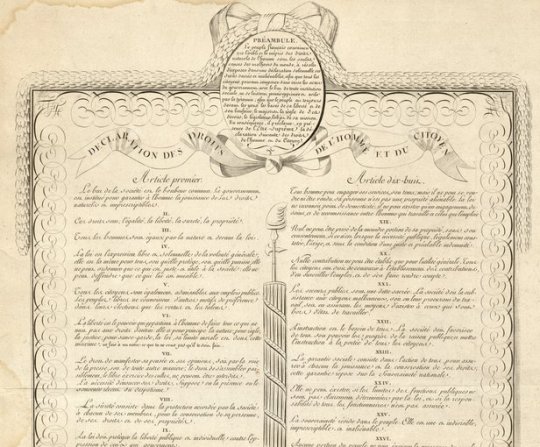 PRÉAMBULE.
Le peuple français convaincu
que l'oubli et le mépris des droits
naturels de l'homme sont les seules
causes des malheurs du monde, a résolu
d'exposer dans une déclaration solennelle ces
droits sacrés et inaliénables, afin que tous les
citoyens pouvant comparer sans cesse les actes
du gouvernement avec le but de toute institution
sociale, ne se laissent jamais opprimer et avilir
par la tyrannie; afin que le peuple ait toujours
devant les yeux les bases de sa liberté et de
son bonheur, le magistrat la règle de ses
devoirs, le législateur l'objet de sa mission.
En conséquence il proclame, en présence
de l'Être Suprême, la
déclaration suivante des droits
de l'homme et du Citoyen.
DECLARATION DES DROITS DE L'HOMME ET DU CITOYEN
Article premier.
Le but de la société est le bonheur commun. Le gouvernement
est institué pour garantir à l'homme la jouissance de ses droits
naturels et imprescriptibles.
II.
Ces droits sont l'égalité, la liberté, la sûreté, la propriété.
III.
Tous les hommes sont égaux par la nature et devant la loi.
IV.
La loi est l'expression libre et solennelle de la volonté générale;
elle est la même pour tous, soit qu'elle protège, soit qu'elle punisse; elle
ne peut ordonner que ce qui est juste et utile à la société; elle ne
peut défendre que ce qui lui est nuisible.
V.
Tous les citoyens sont également admissibles aux emplois publics.
Les peuples libres ne connaissent d'autres motifs de préférence
dans leurs élections que les vertus et les talens.
VI.
La liberté est le pouvoir qui appartient à l'homme de faire tout ce qui ne
nuit pas aux droits d'autrui: elle a pour principe la nature, pour règle
la justice, pour sauve-garde la loi; sa limite morale est dans cette
maxime: ne fais pas à un autre ce que tu ne veux pas qu'il te soit fait.
VII.
Le droit de manifester sa pensée et ses opinions, soit par la voie
de la presse, soit de toute autre manière, le droit de s'assembler
paisiblement, le libre exercice des cultes, ne peuvent être interdits.
La nécessité d'énoncer ces droits suppose ou la présence ou le
souvenir récent du despotisme.
VIII.
La sûreté consiste dans la protection accordée par la Société
à chacun de ses membres, pour la conservation de sa personne
de ses droits et de ses propriétés.
IX.
La loi doit protéger la liberté publique et individuelle contre
Article dix-huit.
Tout homme peut engager ses services, son tems; mais il ne peut se vendre
ni être vendu, sa personne n'est pas une propriété aliénable. La loi
ne reconnoit point de domesticité; il ne peut exister qu'un engagement
de soins et de reconnaissance entre l'homme qui travaille et celui qui l'emploie.
XIX.
Nul ne peut être privé de la moindre portion de sa propriété, sans son
consentement, si ce n'est lorsque la nécessité publique légalement constatée
l'exige, et sous la condition d'une juste et préalable indemnité.
XX.
Nulle contribution ne peut être établie que pour l'utilité générale. Tous
les citoyens ont droit de concourir à l'établissement des contributions
d'en surveiller l'emploi et de s'en faire rendre compte.
XXI.
Les secours publics sont une dette sacrée. La société doit la
subsistance aux citoyens malheureux, soit en leur procurant du travail,
soit en assurant les moyens d'exister à ceux qui sont
hors d'état de travailler.
XXII.
L'instruction est le besoin de tous. La société doit favoriser
de tout son pouvoir les progrès de la raison publique et mettre
l'instruction à la portée de tous les citoyens.
XXIII.
La garantie sociale consiste dans l'action de tous, pour assurer
à chacun la jouissance et la conservation de ses droits;
cette garantie repose sur la Souveraineté nationale.
XXIV.
Elle ne peut exister, si les limites des fonctions publiques ne
sont pas clairement déterminées par la loi, et si la responsabilité
de tous les fonctionnaires n'est pas assurée.
XXV.
La souveraineté réside dans le peuple. Elle est une et indivisible,
imprescriptible et inaliénable.
XXVI.
Aucune portion du peuple ne peut